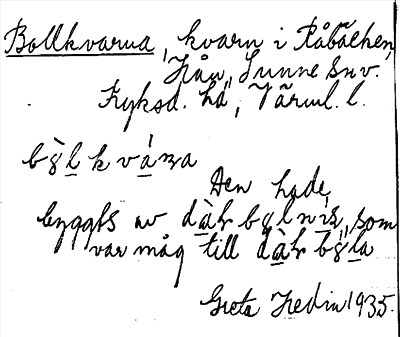 Bollkvarna, kvarn i Råbäcken,
Sunne snv.
Fryksd. hd, Värml. l.
Den hade
byggts av dàr bolnis, som
var måg till dàr bòla
Greta Hedin 1935.